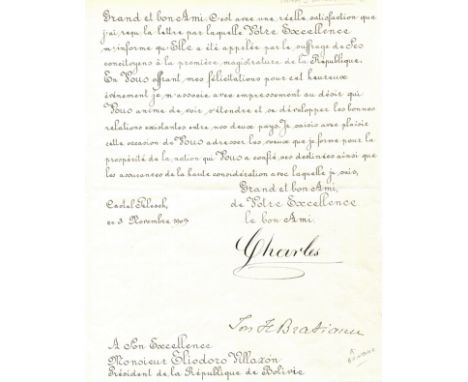 Grand et bon Ami. C'est avec une réelle satisfaction que
j'ai reçu la lettre par laquelle Votre Excellence
m'informe qu'Elle a été appelée par le suffrage de Ses
concitoyens à la première magistrature de la République.
En Vous offrant mes félicitations pour cet heureux
événement je m'associe avec empressement au désir qui
Vous anime de voir s'étendre et se développer les bonnes
relations existantes entre nos deux pays. Je saisis avec plaisir
cette occasion de Vous adresser les voeux que je forme pour la
prospérité de la nation qui Vous a confié ses destinées ainsi que
les assurances de la haute considération avec laquelle je suis,
Grand et bon Ami,
de Votre Excellence
le bon Ami.
Castel Pelesch,
ce 3 Novembre 1909
Charles
Ion I C Bratianu
A Son Excellence
Monsieur Eliodoro Villazón
Président de la République de Bolivie